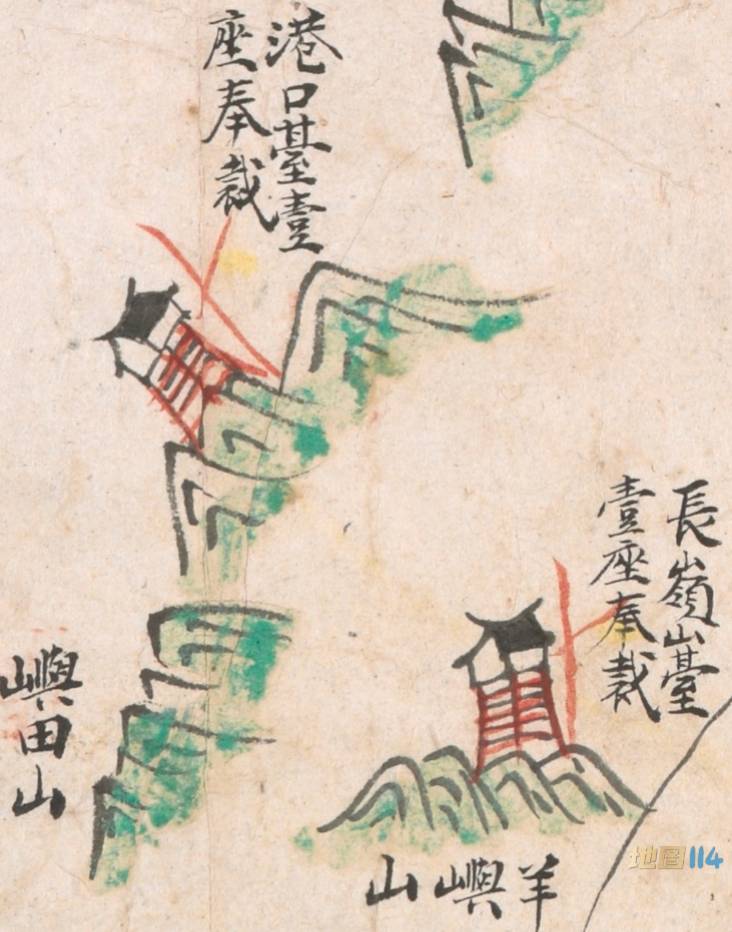 港口䑓壹
座奉裁
長嶺山䑓
壹座奉裁
嶼田山
羊嶼山
地圖114